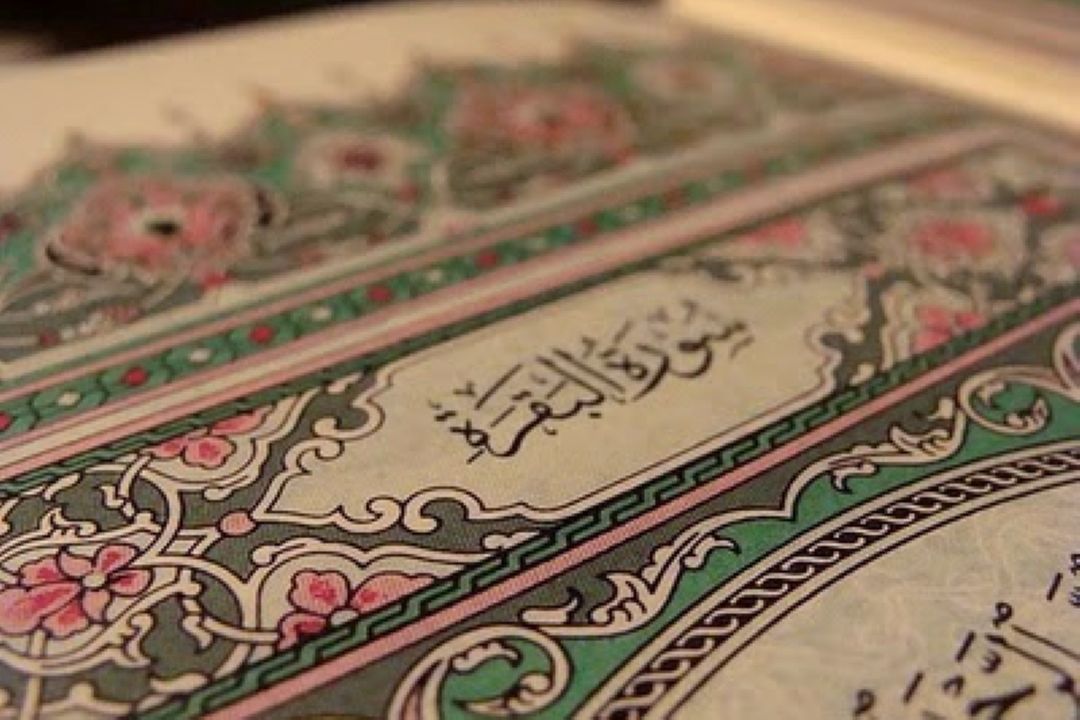 سُورَةُ البَقَرَةِ